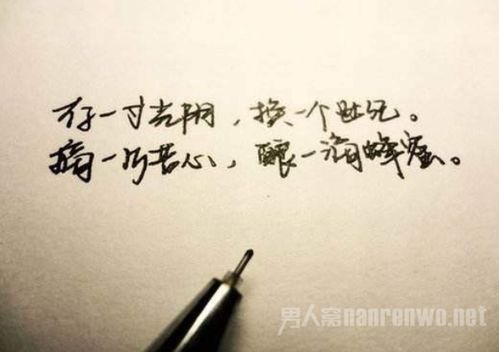 存一寸光阴，换一个世纪。
摘一所苦心，酿一滴蜂蜜。
男人窝nanrenwo.net